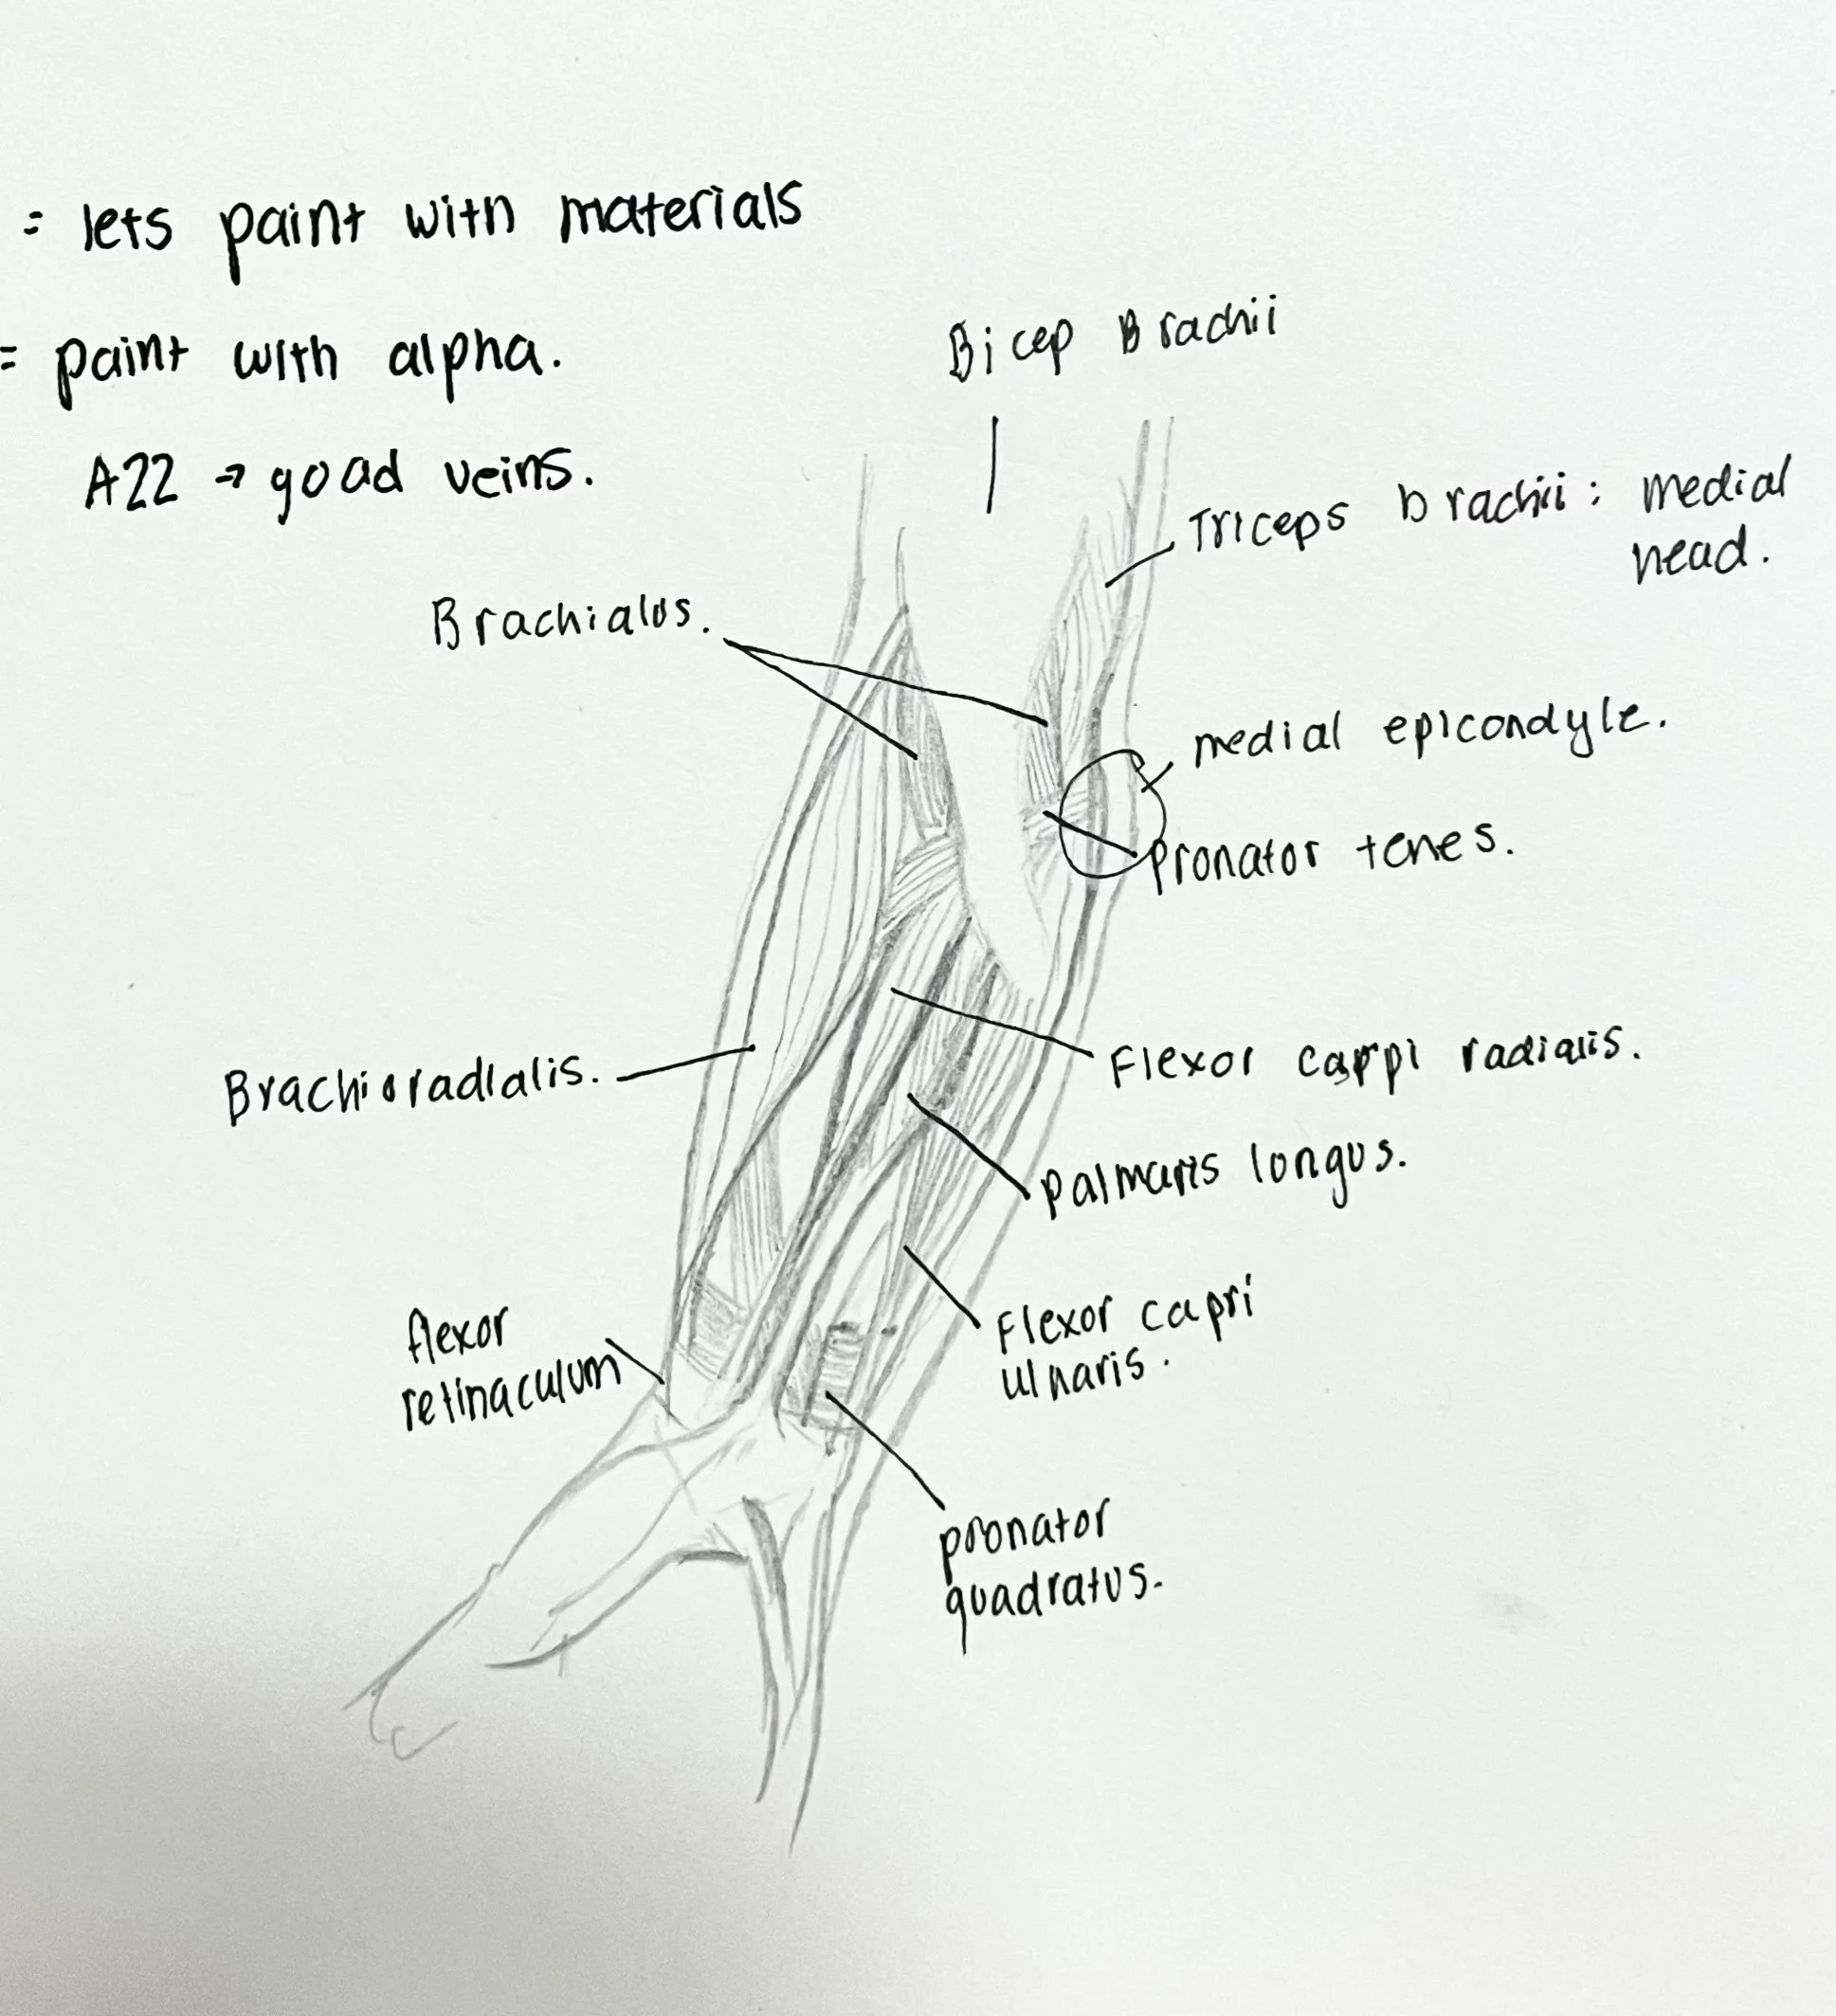 = lets paint with materials
= paint with alpha.
A22 → goad veins.
Bicep Brachii
Triceps brachii : medial
head.
Brachialus.
medial epicondyle.
Pronator tenes.
Flexor carpi radialis.
Brachioradialis.
palmaris longus.
flexor
retinaculum
Flexor capri
ulnaris.
pronator
quadratus.